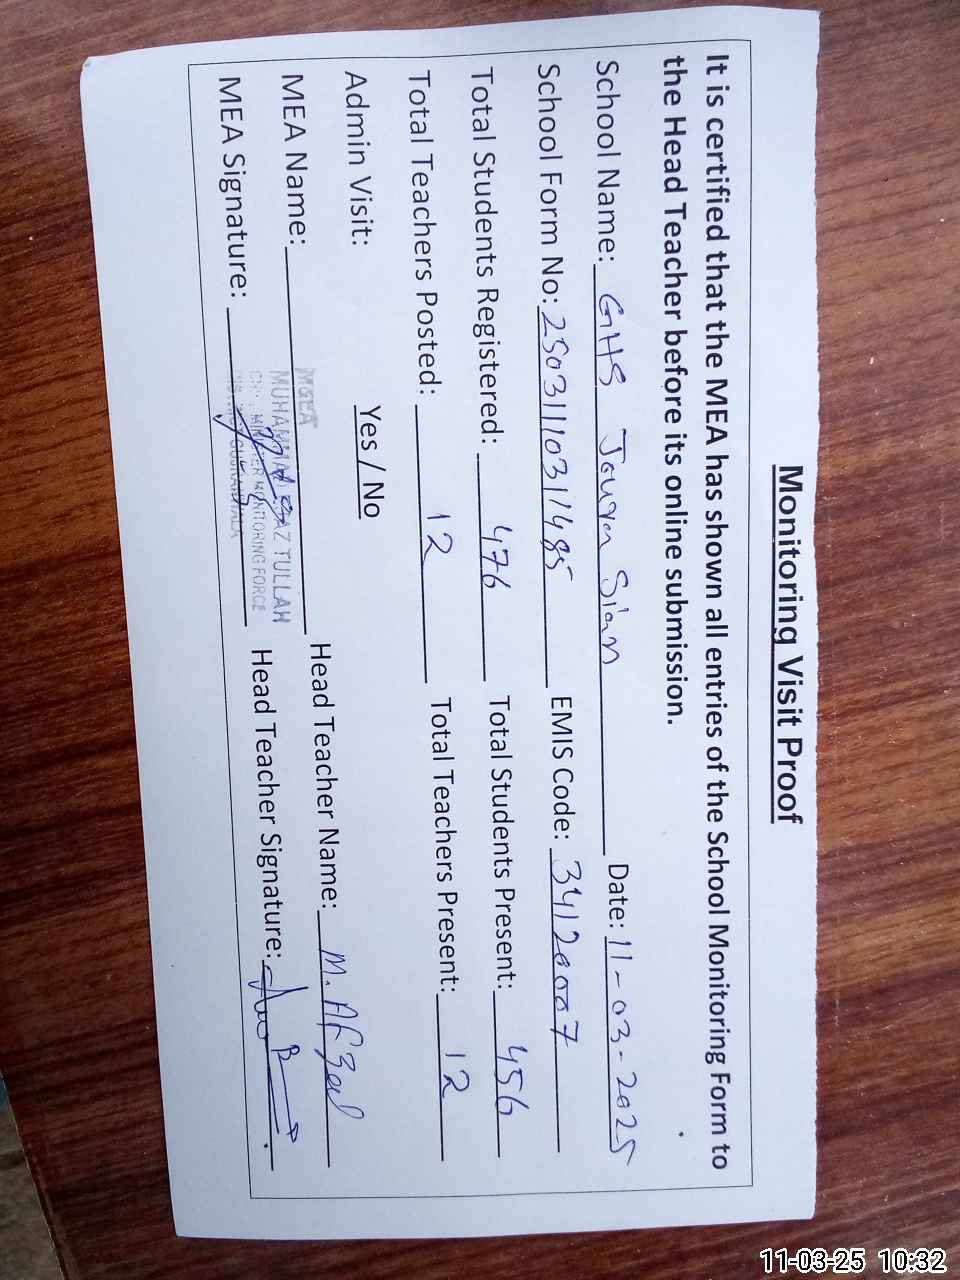 Monitoring Visit Proof
It is certified that the MEA has shown all entries of the School Monitoring Form to
the Head Teacher before its online submission.
School Name: GHS Jougan Sian Date: 11-03-2025
School Form No: 250311103111485 EMIS Code: 34120007
Total Students Registered: 476 Total Students Present: 456
Total Teachers Posted: 12 Total Teachers Present: 12
Admin Visit: Yes / No
MEA Name: Head Teacher Name: M. Afzal
MEA Signature: Head Teacher Signature:
M&EA
MUHAMMAD TULLAH
MONITORING FORCE
11-03-25 10:32